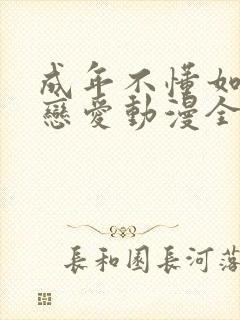 成年不懂如
戀愛動漫全
長和園長河落